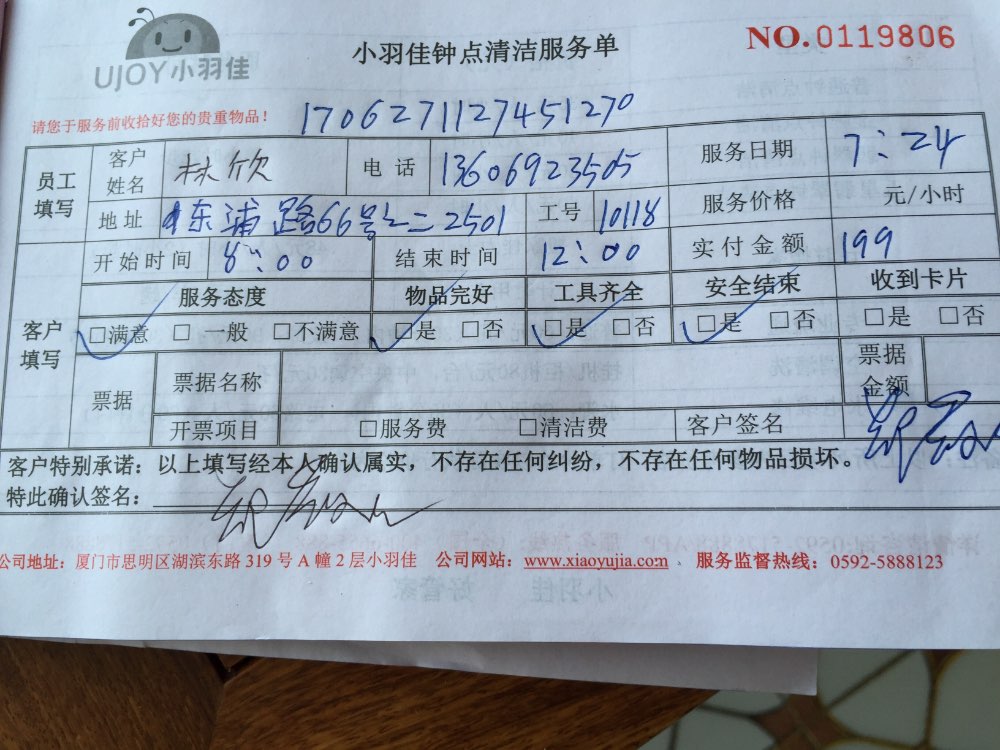 UJOY小羽佳
小羽佳钟点清洁服务单
NO.0119806
请您于服务前收拾好您的贵重物品！
1706271127451270
员工填写
客户姓名 林欣 电话 13606923505 服务日期 7:24
地址 东浦路66号之二2501 工号 10118 服务价格 元/小时
开始时间 8:00 结束时间 12:00 实付金额 199
客户填写
服务态度 物品完好 工具齐全 安全结束 收到卡片
□满意 □一般 □不满意 □是 □否 □是 □否 □是 □否 □是 □否
票据 票据名称 票据金额
开票项目 □服务费 □清洁费 客户签名
客户特别承诺：以上填写经本人确认属实，不存在任何纠纷，不存在任何物品损坏。
特此确认签名：
公司地址：厦门市思明区湖滨东路 319 号 A 幢 2 层小羽佳 公司网站：www.xiaoyujia.com 服务监督热线：0592-5888123